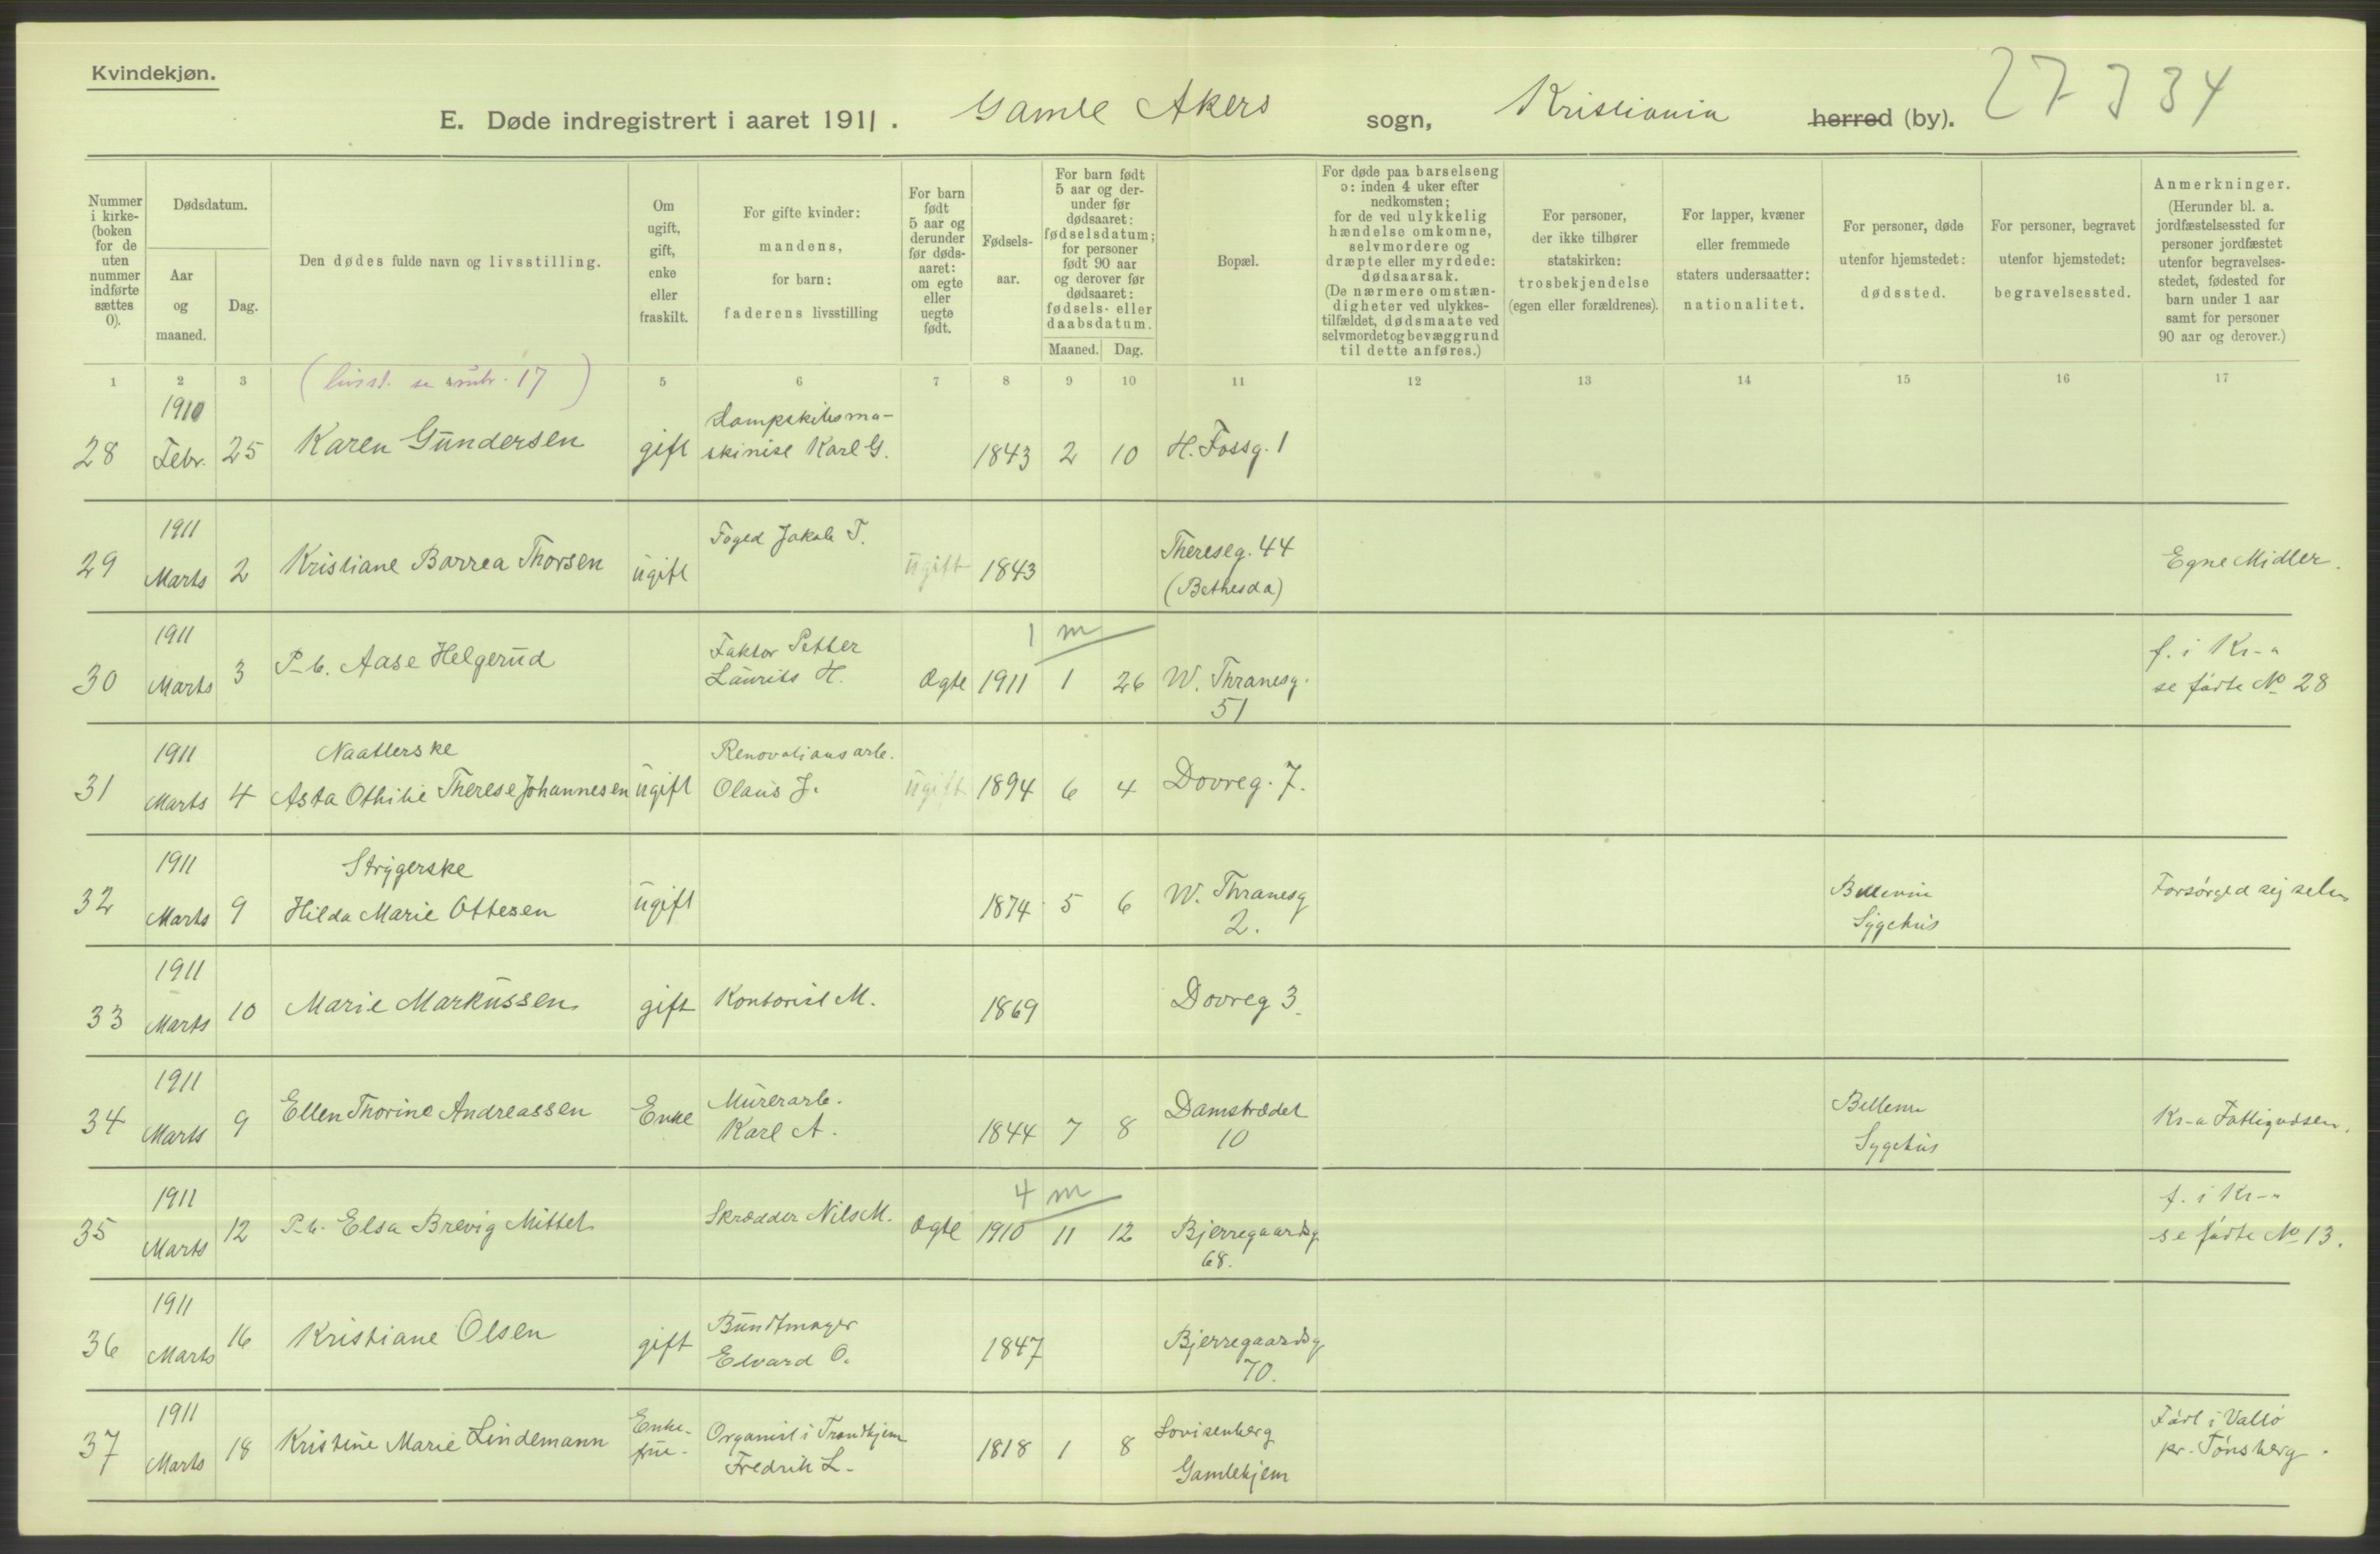 Kvindekjøn.
E. Døde indregistrert i aaret 1911. Gamle Akers sogn, Kristiania herred (by). 27 3 34
Nummer i kirke- (boken for de uten nummer indførte sættes 0).
Dødsdatum.
Aar og maaned.
Dag.
Den dødes fulde navn og livsstilling.
Om ugift, gift, enke eller fraskilt.
For gifte kvinder: mandens, for barn: faderens livsstilling
For barn født 5 aar og derunder før døds- aaret: om egte eller uegte født.
Fødsels- aar.
For barn født 5 aar og der- under før dødsaaret: fødselsdatum; for personer født 90 aar og derover før dødsaaret: fødsels- eller daabsdatum.
Maaned. Dag.
Bopæl.
For døde paa barselseng ɔ: inden 4 uker efter nedkomsten; for de ved ulykkelig hændelse omkomne, selvmordere og dræpte eller myrdede: dødsaarsak. (De nærmere omstæn- digheter ved ulykkes- tilfældet, dødsmaate ved selvmordet og bevæggrund til dette anføres.)
For personer, der ikke tilhører statskirken: trosbekjendelse (egen eller forældrenes).
For lapper, kvæner eller fremmede staters undersaatter: nationalitet.
For personer, døde utenfor hjemstedet: dødssted.
For personer, begravet utenfor hjemstedet: begravelsessted.
Anmerkninger. (Herunder bl. a. jordfæstelsessted for personer jordfæstet utenfor begravelses- stedet, fødested for barn under 1 aar samt for personer 90 aar og derover.)
1 2 3 (livsst. se rubr. 17) 5 6 7 8 9 10 11 12 13 14 15 16 17
1910 Dampskibsma-
28 Febr. 25 Karen Gundersen gift skinist Karl G. 1843 2 10 H. Fossg. 1
1911 Foged Jakob T. Thereseg. 44
29 Marts 2 Kristiane Borrea Thorsen ugift ugift 1843 (Bethesda) Egne Midler.
1911 Faktor Petter 1 m f. i Kr-a
30 Marts 3 P-b. Aase Helgerud Laurits H. Ægte 1911 1 26 W. Thranesg. 51 se fødte No 28
1911 Naatlerske Renovationsarb.
31 Marts 4 Asta Othilie Therese Johannesen ugift Olaus J. ugift 1894 6 4 Dovreg. 7.
1911 Strygerske
32 Marts 9 Hilda Marie Ottesen ugift 1874 5 6 W. Thranesg 2. Sygehus Forsørged sig selv
1911
33 Marts 10 Marie Markussen gift Kontorist M. 1869 Dovreg 3.
1911 Murerarb.
34 Marts 9 Ellen Thorine Andreassen Enke Karl A. 1844 7 8 Damstrædet 10 Sygehus Kr-a Fattigvæsen.
1911 4 m f. i Kr-a
35 Marts 12 P-b. Elsa Brevig Mittet Skrædder Nils M. Ægte 1910 11 12 Bjerregaardsg 68. se fødte No 13.
1911 Bundtmager
36 Marts 16 Kristiane Olsen gift Edvard O. 1847 Bjerregaardsg 70.
1911 Enke- Organist i Trondhjem Lovisenberg Født i Vallø
37 Marts 18 Kristine Marie Lindemann frue. Fredrik L. 1818 1 8 Gamlehjem pr. Tønsberg.